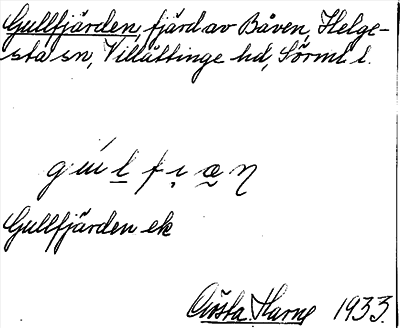 Gullfjärden, fjärd av Båven, Helge-
sta sn, Villåttinge hd, Sörml l.
Gullfjärden ek
Harne 1933.